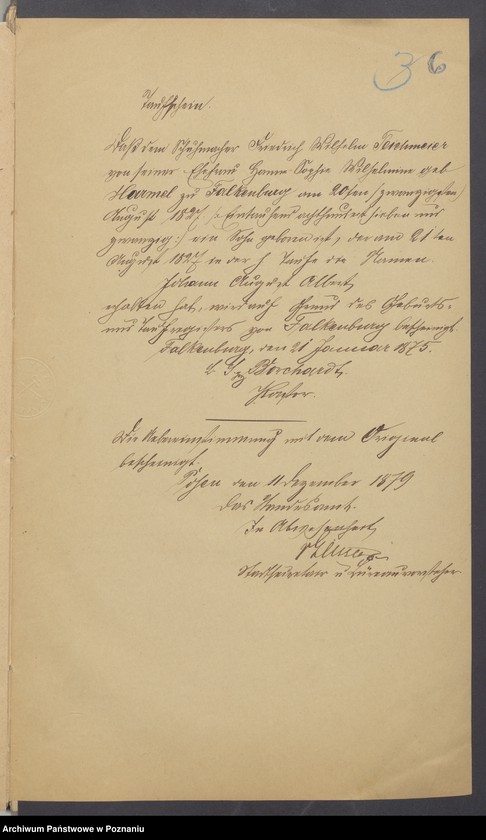 36
Taufschein.
Daß dem Schuhmacher Friedrich Wilhelm
von seiner Ehefrau Hanne Sophie Wilhelmine geb
Harmel zu Falkenburg am 20ten (zwanzigsten)
August 1827 /: Eintausend achthundert sieben und
zwanzig :/ ein Sohn geboren ist, der am 21ten
August 1827 in der h Taufe die Namen
Johann August Albert
erhalten hat, wird auf Grund des Geburts-
und Taufregisters von Falkenburg bescheinigt.
Falkenburg, den 21 Januar 1875.
L S gez Borchardt.
Pastor.
Die Uebereinstimmung mit dem Original
bescheinigt.
Posen den 11 Dezember 1879
Das Standesamt.
In
Stadtsecretair u Büreauvorsteher
Archiwum Państwowe w Poznaniu